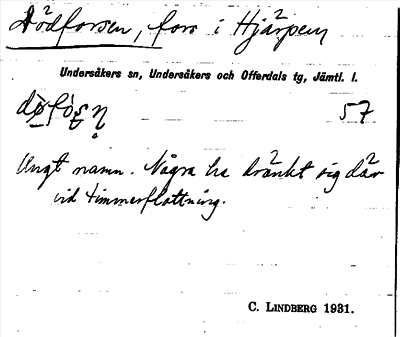 Dödforsen, fors i Hjärpen
Undersåkers sn, Undersåkers och Offerdals tg, Jämtl. l.
57
Ungt namn. Några ha dränkt sig där
vid timmerflottning.
C. LINDBERG 1931.